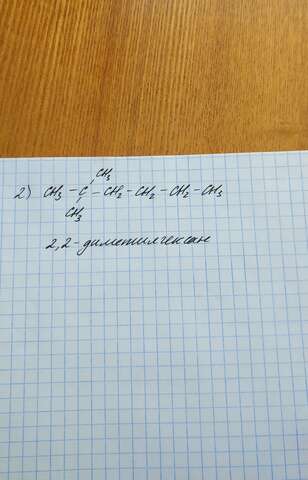 CH₃
2) CH₃ - C - CH₂ - CH₂ - CH₂ - CH₃
CH₃
2,2-диметилгексан